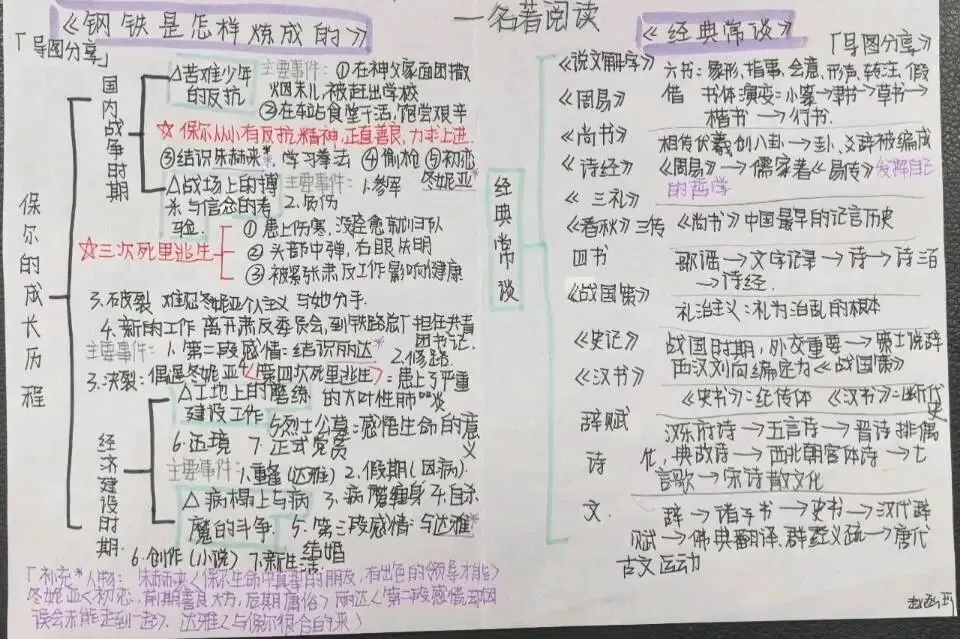 一名著阅读
《钢铁是怎样炼成的》
「导图分享」
保尔的成长历程
国内战争时期
△苦难少年的反抗
主要事件：①在神父家面团撒
烟末儿，被赶出学校
②在车站食堂干活，饱尝艰辛
☆保尔从小有反抗精神，正直善良，力求上进。
③结识朱赫来* 学习拳法 ④偷枪 ⑤初恋
冬妮亚*
△战场上的搏
杀与信念的考
验
主要事件：1.参军
2.负伤
☆三次死里逃生
①患上伤寒，没痊愈就归队
②头部中弹，右眼失明
③被紧张肃反工作影响健康
3.破裂 难忍冬妮亚个人主义 与她分手.
4.新的工作 离开肃反委员会，到铁路总厂担任共青
团书记.
主要事件：1.第二段感情：结识丽达* 2.修路.
3.决裂：偶遇冬妮亚 4.<第四次死里逃生>：患上了严重
的大叶性肺炎
经济建设时期.
△工地上的磨练
建设工作
5.烈士公墓：感悟生命的意
义
6.边境 7.正式党员
主要事件：1.重逢(达雅) 2.假期(因病).
△病榻上与病
魔的斗争.
3.病魔缠身 4.自杀
5.第三段感情：与达雅*
结婚
6.创作(小说) 7.新生活
「补充*人物：朱赫来<保尔生命中真挚的朋友，有出色的领导才能>
冬妮亚<初恋，前期善良大方，后期庸俗> 丽达<第二段感情却因
误会未能走到一起> 达雅<与保尔很合的来)
《经典常谈》
「导图分享》
经典常谈
《说文解字》
《周易》
《尚书》
《诗经》
《三礼》
《春秋》三传
四书
《战国策》
《史记》
《汉书》
辞赋
诗
文.
六书：象形，指事，会意，形声，转注，假
借 书体演变：小篆→隶书→草书→
楷书→行书.
相传伏羲创八卦→卦、爻辞被编成
《周易》→儒家者《易传》发挥自己
的哲学
《尚书》中国最早的记言历史
歌谣→文字记录→诗→诗三百
→诗经.
礼治主义：礼为治乱的根本
战国时期，外交重要→策士说辞
西汉刘向编定为《战国策》
《史书》：纪传体 《汉书》：断代
史
汉乐府诗→五言诗→晋诗排偶
化，典故诗→西北朝宫体诗→七
言歌→宋诗散文化
辞→诸子书→史书→汉代辞
赋→佛典翻译、群经义疏→唐代
古文运动